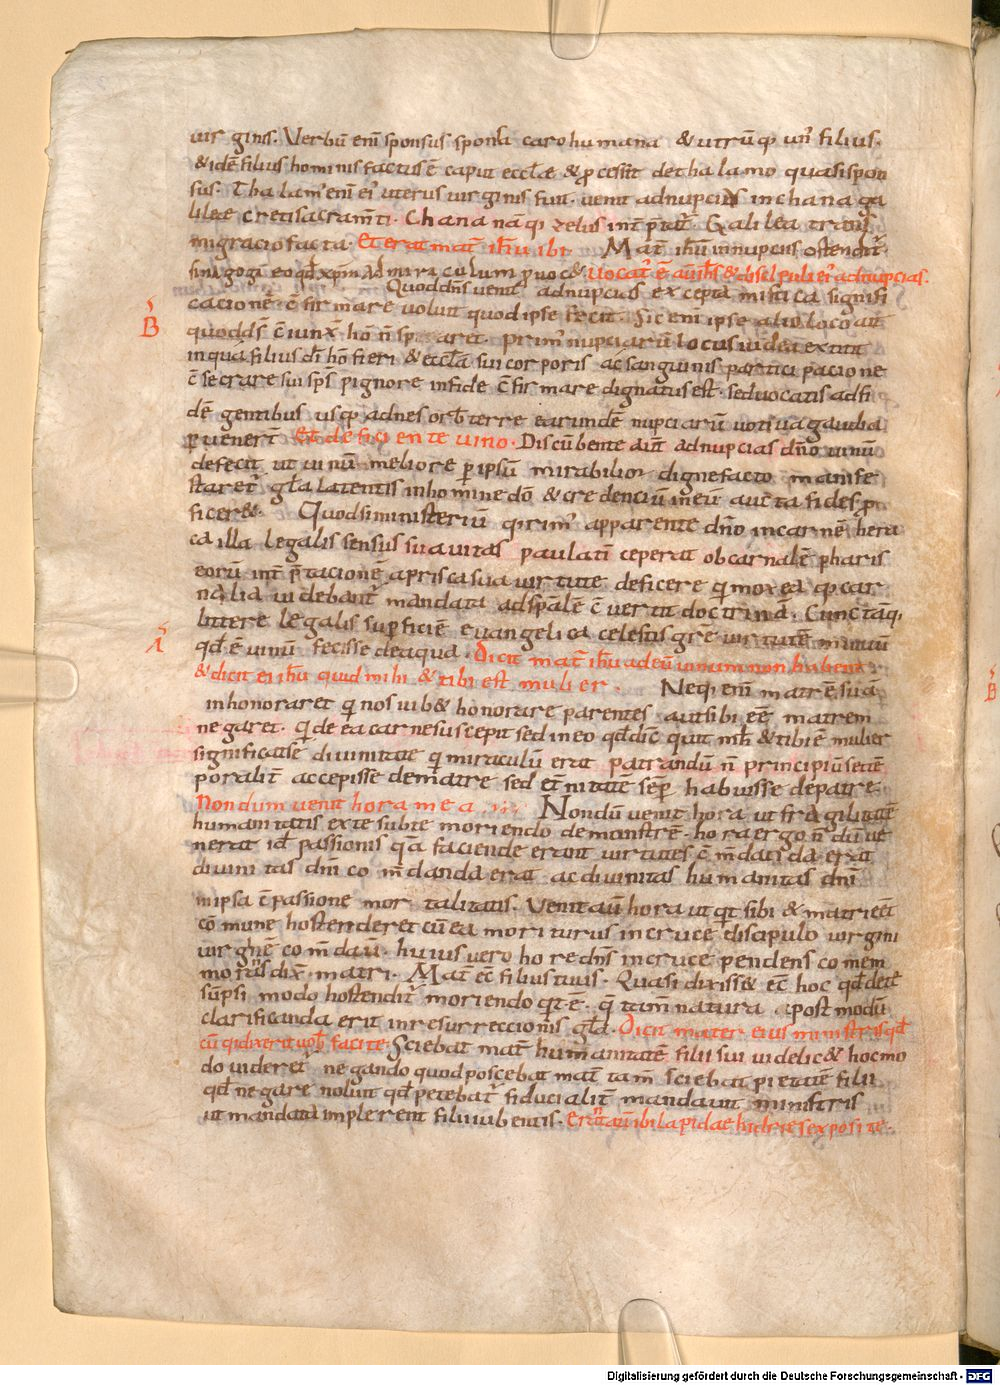 uir ginis. Verbū eni sponsus sponsa caro humana & utrūq; un' filius.
& idē filius hominis factus ē caput ecclae & p cessit de thalamo quasi spon
sus. Thalam' eni ei' uterus uirginis fuit. uenit ad nupcias in chana ga
lileae c reti sacram̄ti. Chana nāq; zelus int̄ p̄tat'. Galilea trans
migracio facta. Et erat mat̄ ihu ibi. Mat̄ ihu in nupciis ostendit'
sinagoga eo qd xpm ad miraculum puocet. Uocat' ē aut ihs & discipuli ei' ad nupcias.
Quod dn̄s uenit ad nupcias excepta mistica signifi
B
cacione c̄ firmare uoluit quod ipse fecit. Sic eni ipse alio loco ait
quod ds c̄ iunx̄ ho n̄ separaret. Prim' nupciarū locus iudea extitit
in qua filius di ho fieri & ecclam sui corporis ac sanguinis participacione
c̄ secrare sui sps pignore in fide c̄ firmare dignatus est. sed uocatis ad fi
dē gentibus usq; ad nes orb' terre earundē nupciarū uotiua gaudia
p uener̄t. Et deficiente uino. Discūbente aūt ad nupcias dn̄o uinū
defecit ut uinū meliore p ipsū mirabilior digne facto manife
staret' gla latentis in homine dō & credenciū in eū aucta fides p
ficeret. Quod si ministeriū querim' apparente dn̄o in carnē hera
ca illa legalis sensus suauitas paulatī ceperat ob carnalē pharis
eorū int̄ p̄tacionē a prisca sua uirtute deficere q mox ea q; car
nalia uidebant' mandata ad sp̄alē c̄ uertit doctrinā. Cunctāq;
littere legalis sup ficiē euangelica celestis gre uirtutē mutauit
A
qd ē uinū fecisse de aqua. Dicit mat̄ ihu ad eū uinum non habent.
& dicit ei ihu quid mihi & tibi est mulier. Neq; eni matrē suā
inhonoraret q nos iubet honorare parentes aut sibi ēē matrem
negaret. q de ea carnē suscepit sed in eo qd dic̄ quit m & tibi ē mulier
significat se diuinitate q miraculū erat patrandū n̄ principiū se tē
poralit̄ accepisse de matre sed et̄nitatē semp habuisse de patre.
Nondum uenit hora mea. Nondū uenit hora ut fragilitatē
humanitatis ex te subte moriendo demonstrē. hora ergo n̄ dū ue
nerat id passionis q a faciende erant uirtutes c̄ m̄dati da erat
diuinitas dni co m̄danda erat ac diuinitas humanitas dni
in ipsa c̄ passione mor talitatis. Venit aū hora ut qt sibi & matri eēt
cō mune hostenderet cū ea moriturus in cruce discipulo uirgini
uirginē com̄dauit. huius uero hore dns in cruce pendens co mem
moratus dix̄ matri. Mat̄ ecc̄ filius tuus. Quasi dixisset ecc̄ hoc qd de te
sūpsi modo hostendit' moriendo qt ē. q̄ tam̄ natura postmodū
clarificanda erit in resurreccionis gla. Dicit mater eius ministris qd
cū q dixerit uob' facite. Sciebat mat̄ humanitatē filii sui uidelicet hoc mo
do uideret' negando quod poscebat mat̄ tam̄ sciebat pietatē filii
qd negare noluit qd petebat' fiducialit̄ mandauit ministris
ut mandata implerent filii iubentis. Erant aūt ibi lapidae hidrie sex posite.
Digitalisierung gefördert durch die Deutsche Forschungsgemeinschaft - DFG